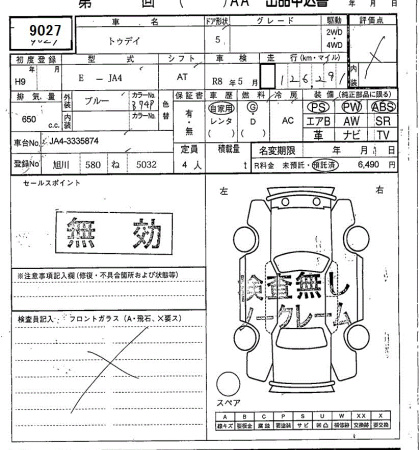 第 回 ( )AA 出品申込書 年 月 日
9027 車名 ドア形状 グレード 駆動 評価点
トゥデイ 5 2WD・4WD
初度登録 型式 シフト 車検 走行(km・マイル) 内装
H9 年 月 E－JA4 AT R8年5月
排気量 外装 ブルー カラーNo. 色替 保証書 車歴 燃料 冷房 装備(純正部品に限る)
650 c.c. 内装 カラーNo. 有・無 自家用 レンタ ( ) G・D ( ) AC PS PW ABS
エアB AW SR
革 ナビ TV
車台No. JA4-3335874 定員 積載量 名変期限 年 月 日
登録No 旭川 580 ね 5032 4人 t R料金 未預託・預託済 6,490 円
セールスポイント 左 右
無効
※注意事項記入欄(修復・不具合箇所および状態等)
検査無し
ノークレーム
検査員記入 フロントガラス(A・飛石、X要ス)
スペア
A B C P S U W XX X